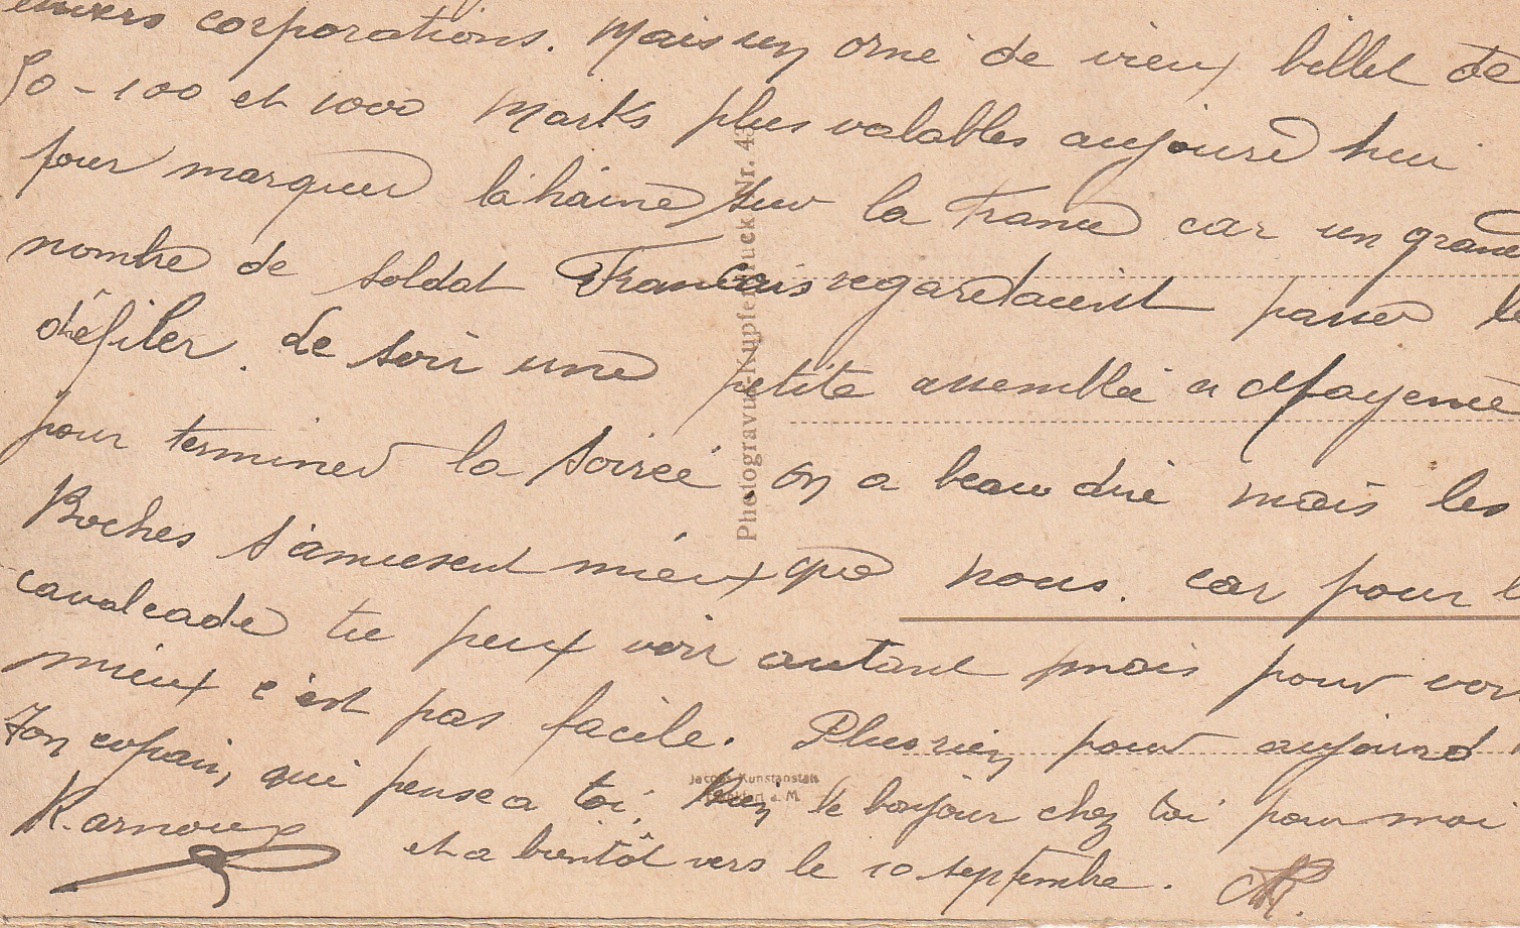 envers corporations. Mais un orné de vieux billet de
50 - 100 et 1000 Marks plus valables aujourd hui
pour marquer la haine sur la France car un grand
nombre de soldat Francais regardaient passer le
défiler. Le soir une petite assemblée a Mayence
pour terminer la soireé on a beau dire mais les
Boches s'amusent mieux que nous. car pour l
cavalcade tu peux voir autant mais pour voir
mieux c'est pas facile. Plus rien pour aujourd
Ton copain, qui pense a toi. le bonjour chez toi pour moi
R. Arnoux
et a bientôt vers le 10 septembre. AR.
Photogravur-Kupferdruck Nr. 43
Jacobs Kunstanstalt
Frankfurt a. M.